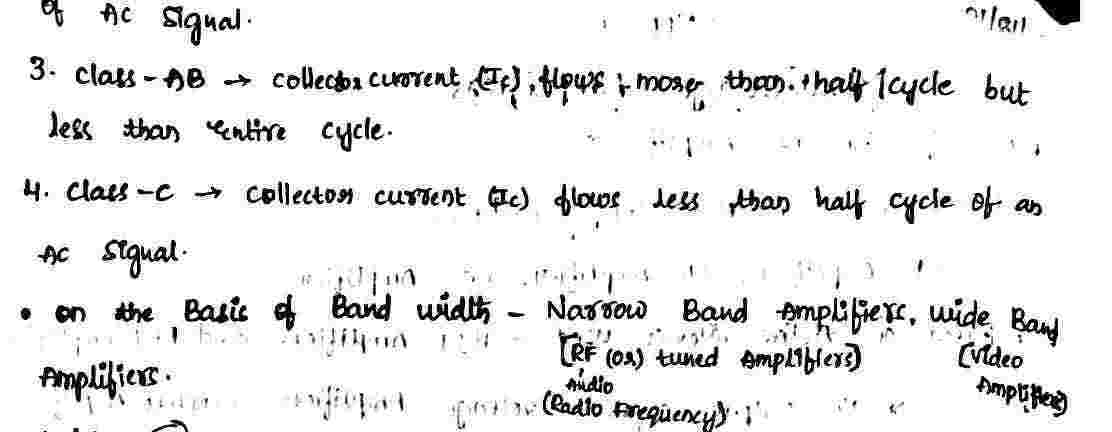 of AC Signal.
3. Class-AB → collector current (Ic) flows more than half cycle but
less than entire cycle.
4. Class-C → collector current (Ic) flows less than half cycle of an
AC Signal.
• on the Basis of Band width - Narrow Band Amplifiers, wide Band
[RF (or) tuned Amplifiers] [Video
Amplifiers. Audio Amplifiers]
(Radio Frequency)